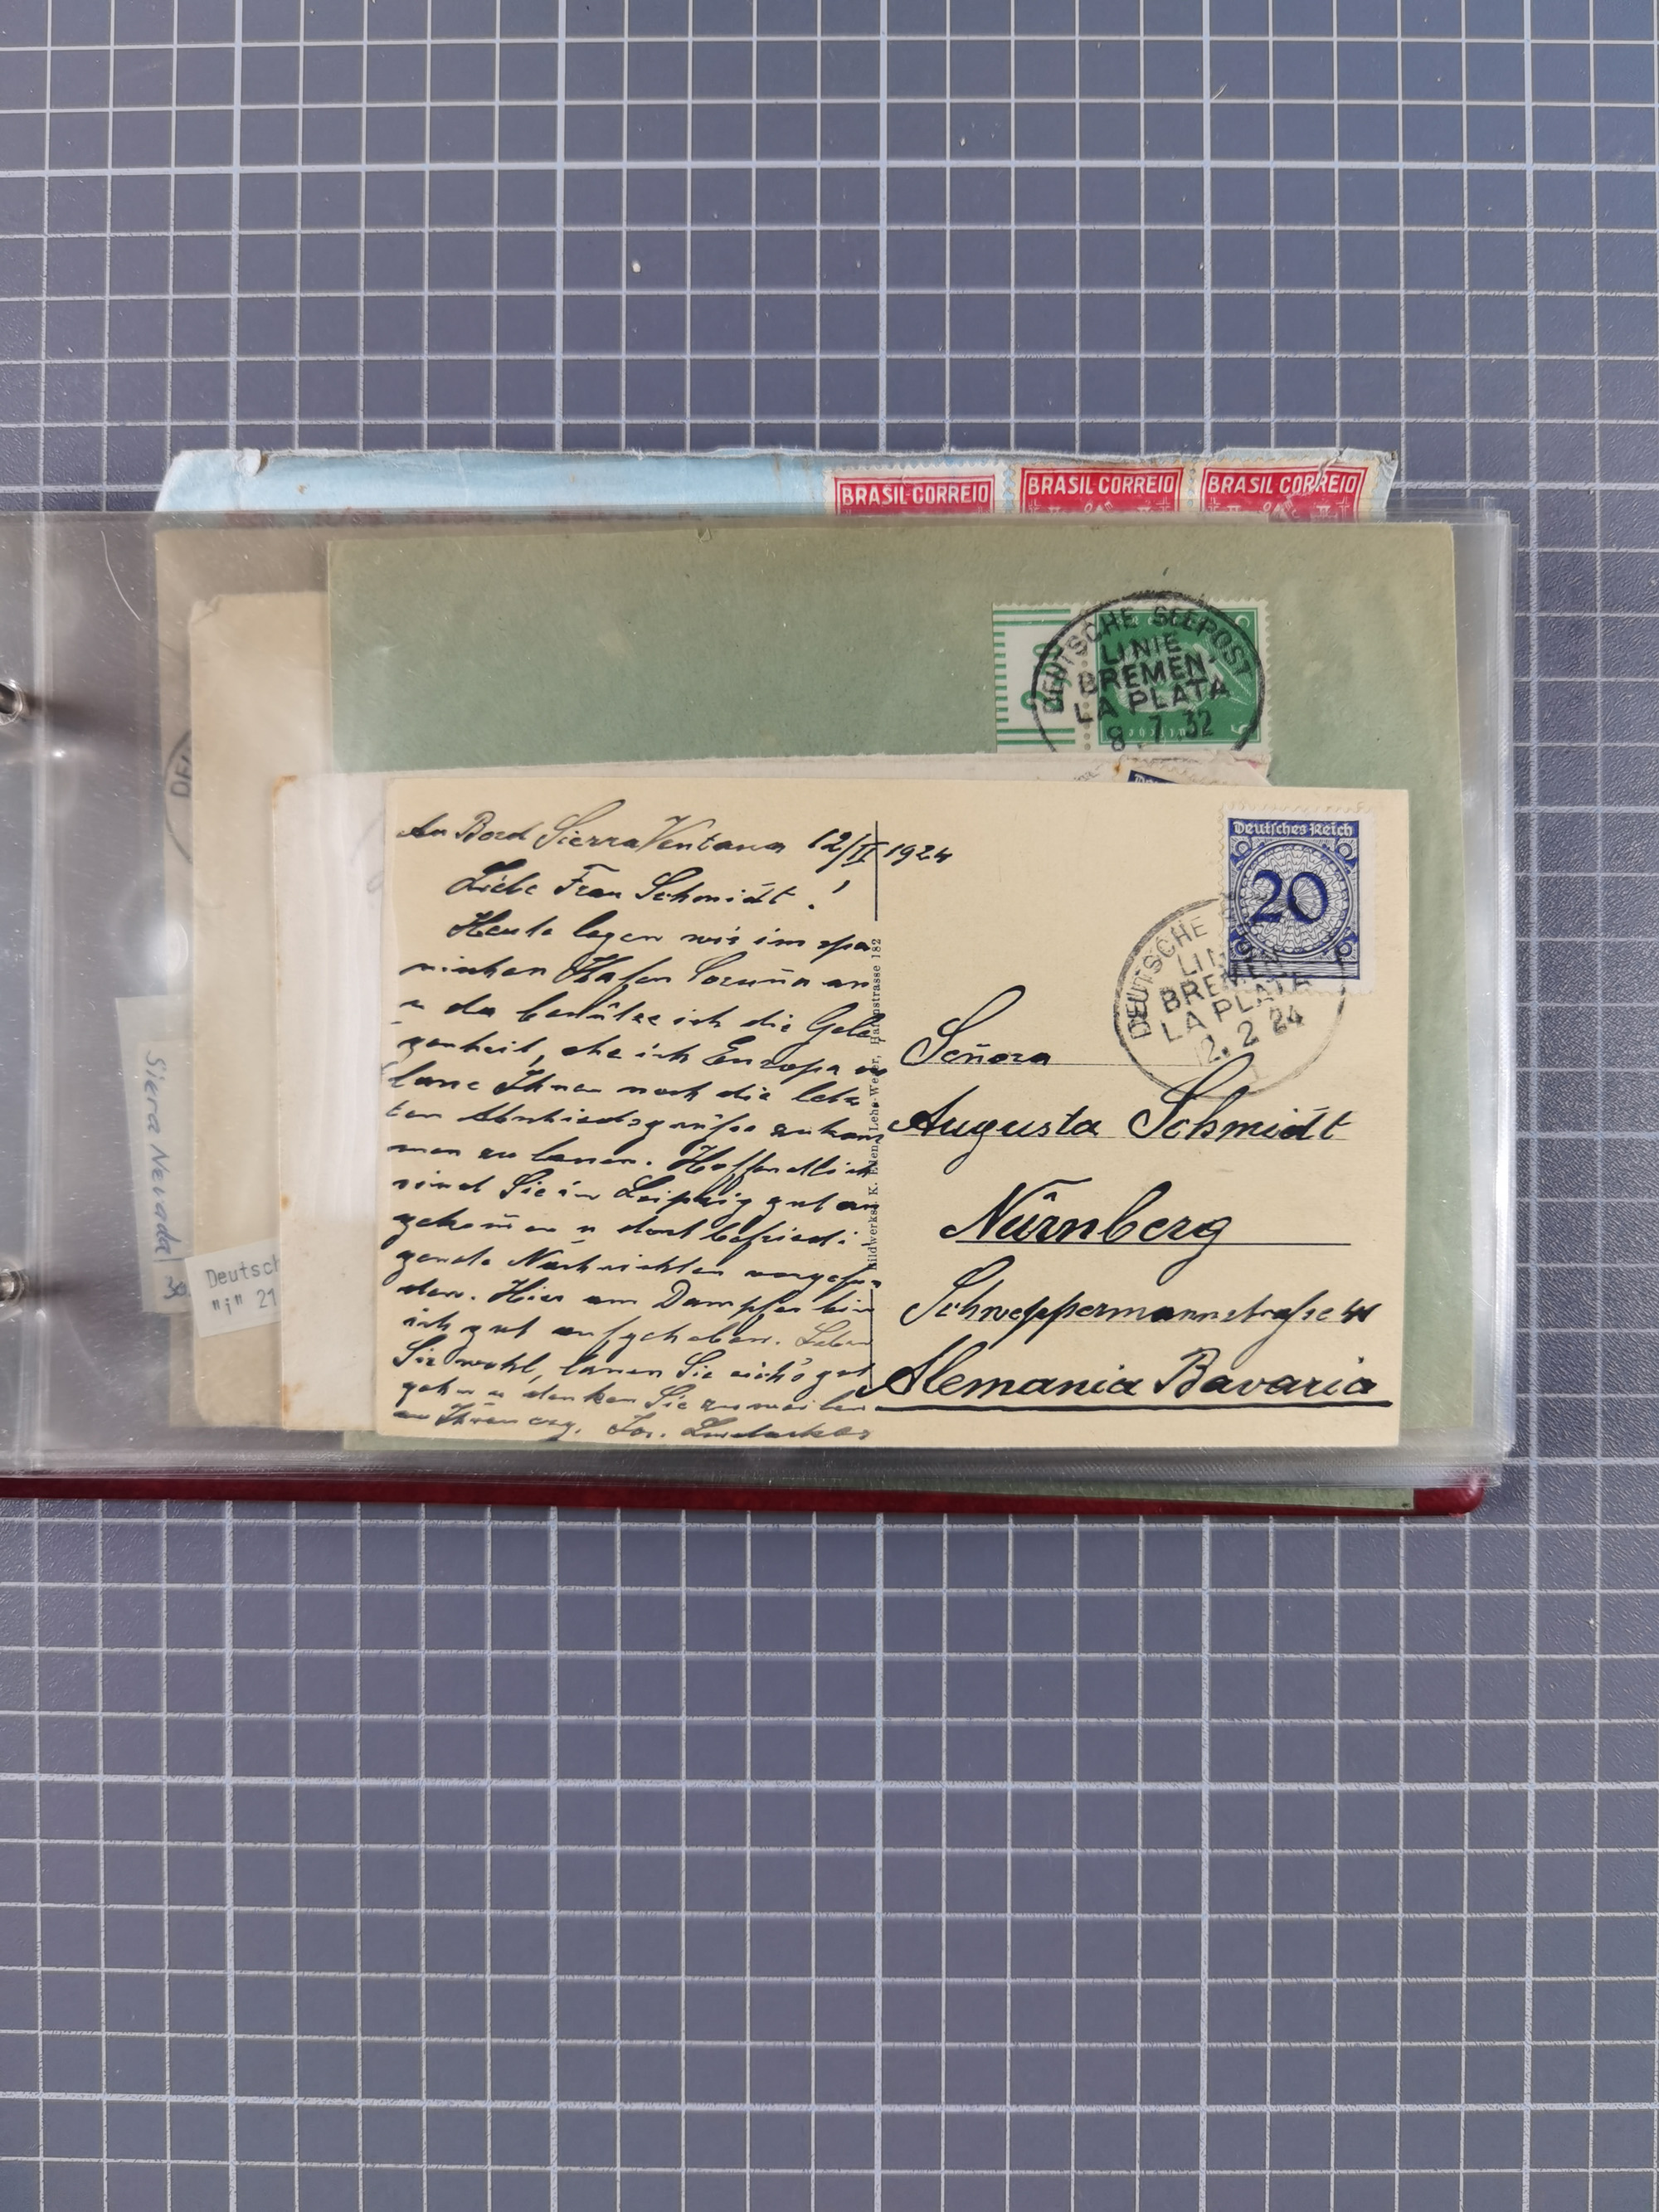 BRASIL CORREIO
BRASIL CORREIO
BRASIL CORREIO
DEUTSCHE SEEPOST
LINIE
BREMEN,
LA PLATA
8. 7. 32
An Bord Sierra Ventana 12/II 1924
Liebe Frau Schmidt!
Heute legen wir im spa
nischen Hafen Coruña an
u da benütze ich die Gele
genheit, ehe ich Europa ver
lasse Ihnen noch die letz
ten Abschiedsgrüße zukom
men zu lassen. Hoffentlich
sind Sie in Leipzig gut an
gekom̄en u dort befriedi-
gende Nachrichten vorgefun
den. Hier am Dampfer bin
ich gut aufgehoben. Leben
Sie wohl, lassen Sie sich's gut
gehn u denken Sie zuweilen
an Ihren Jos.
Bildwerkst. K. Lehe-Weser, Hafenstrasse 182
Deutsches Reich
20
DEUTSCHE
LIN
BREMEN
LA PLATA
12. 2 24
Señora
Augusta Schmidt
Nürnberg
Schweppermannstraße
Alemania Bavaria
Siera Nevada
Deutsch
"i" 21